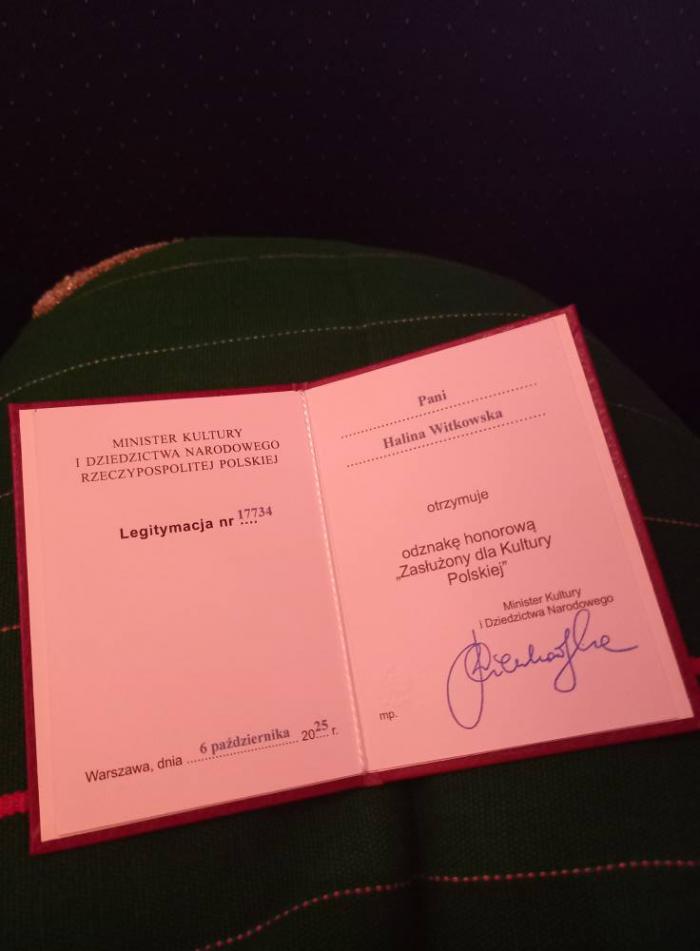 MINISTER KULTURY
I DZIEDZICTWA NARODOWEGO
RZECZYPOSPOLITEJ POLSKIEJ
Legitymacja nr 17734
Warszawa, dnia 6 października 2025 r.
Pani
Halina Witkowska
otrzymuje
odznakę honorową
„Zasłużony dla Kultury
Polskiej”
Minister Kultury
i Dziedzictwa Narodowego
mp.